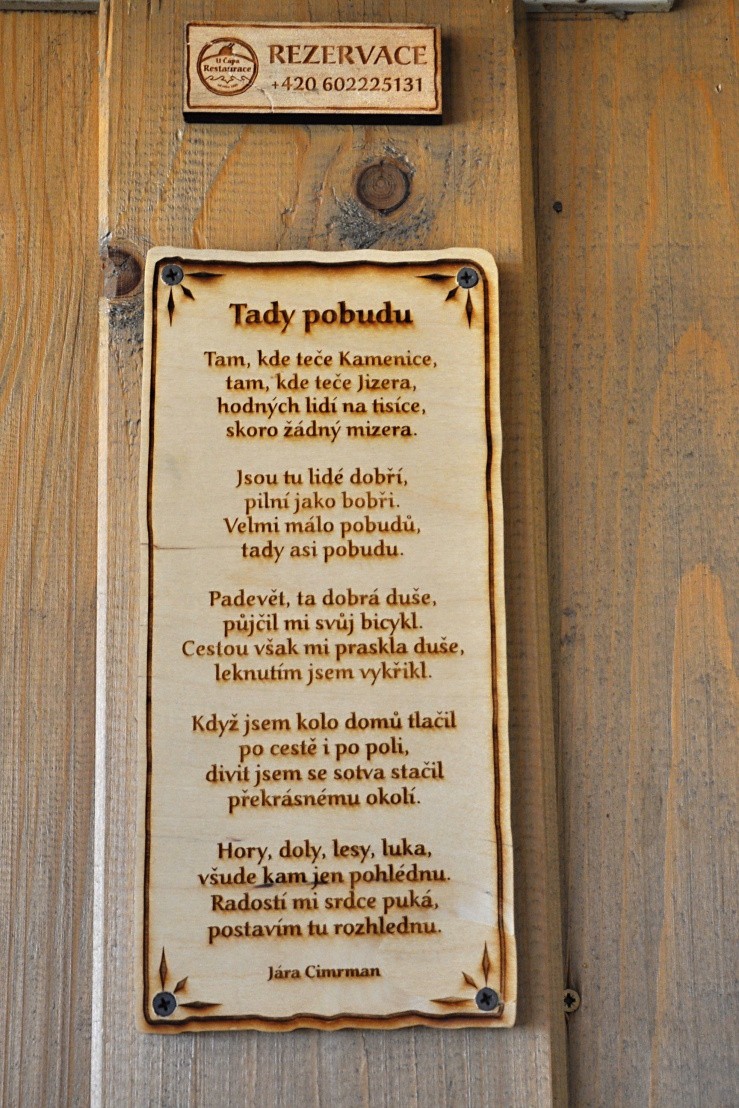 U Čápa
Restaurace
REZERVACE
+420 602225131
Tady pobudu
Tam, kde teče Kamenice,
tam, kde teče Jizera,
hodných lidí na tisíce,
skoro žádný mizera.
Jsou tu lidé dobří,
pilní jako bobři.
Velmi málo pobudů,
tady asi pobudu.
Padevět, ta dobrá duše,
půjčil mi svůj bicykl.
Cestou však mi praskla duše,
leknutím jsem vykřikl.
Když jsem kolo domů tlačil
po cestě i po poli,
divit jsem se sotva stačil
překrásnému okolí.
Hory, doly, lesy, luka,
všude kam jen pohlédnu.
Radostí mi srdce puká,
postavím tu rozhlednu.
Jára Cimrman